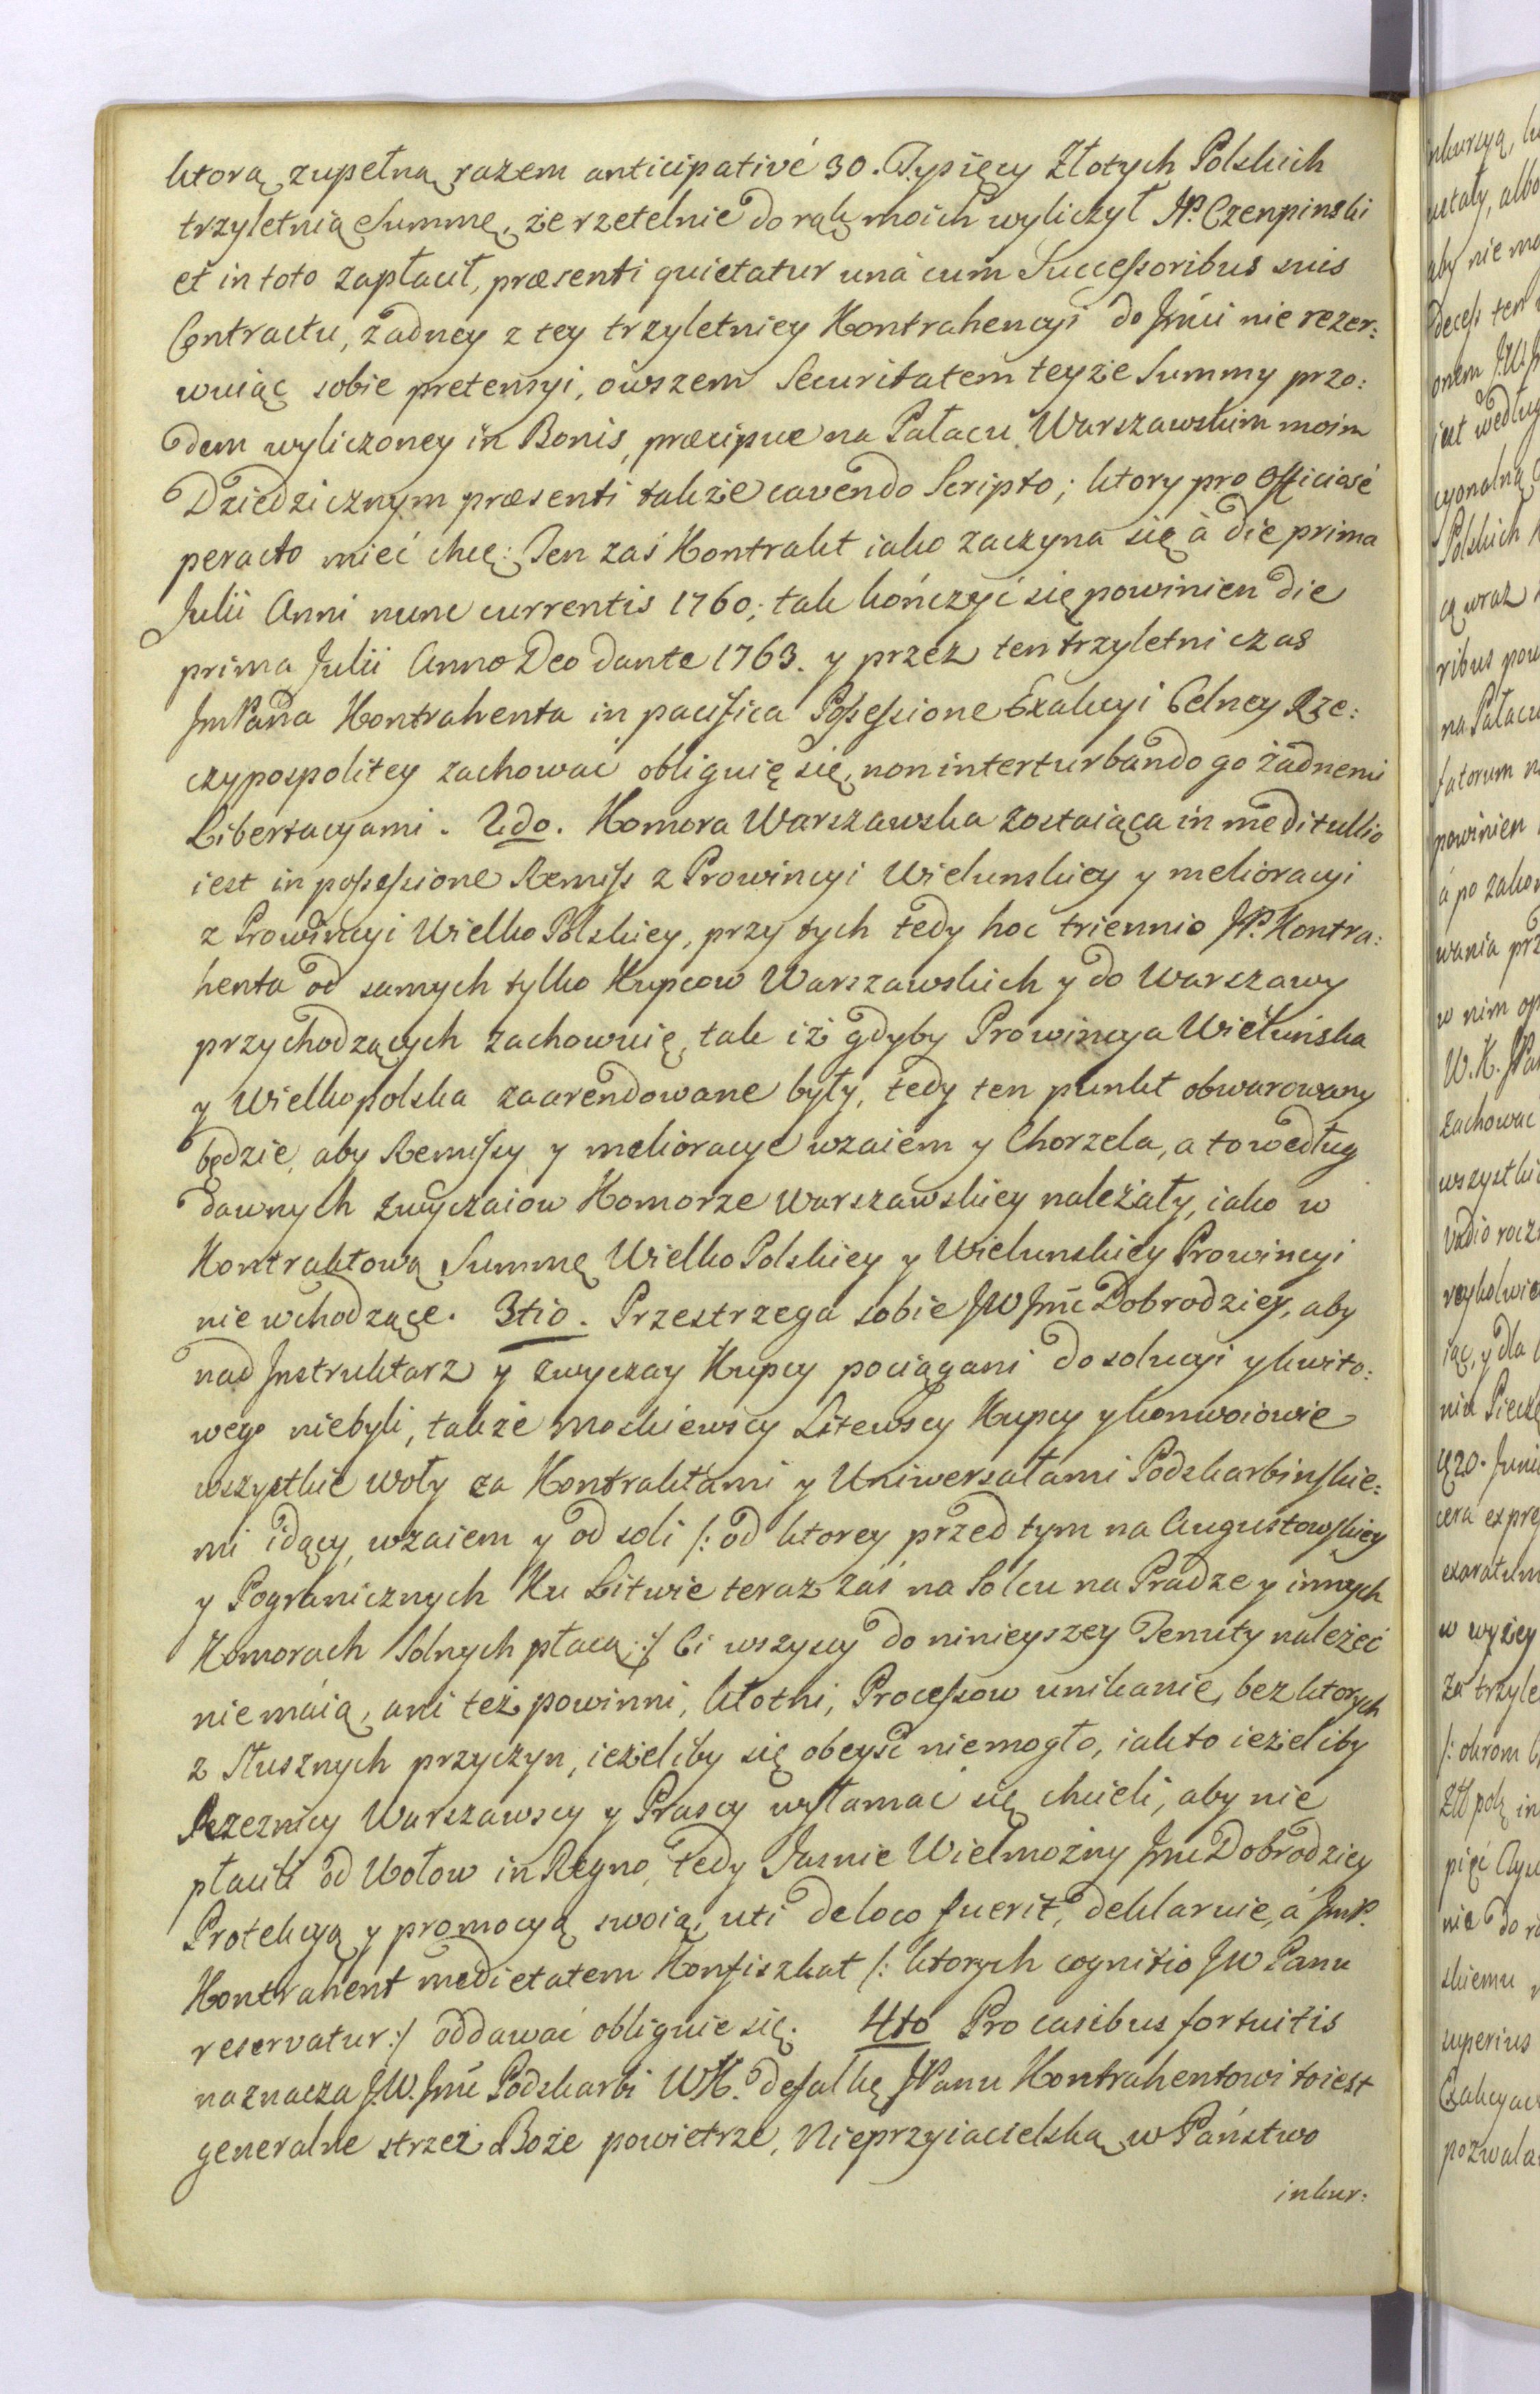 ktorą zupełną razem anticipativé 30. Tysięcy Złotych Polskich
trzyletnią Summę, że rzetelnie do rąk moich wyliczył JP. Czenpinski
et in toto zapłacił, præsenti quietatur unà cum Successoribus suis
Contractu, żadney z tey trzyletniey Kontrahencyi do Jmći nie rezer:
wuiąc sobie pretensyi, owszem Securitatem teyże Summy przo:
dem wyliczoney in Bonis, præcipue na Pałacu Warszawskim moim
Dziedzicznym præsenti także cavendo Scripto; ktory pro Officiosé
peracto mieć chcę: Ten zaś Kontrakt iako zaczyna się à die prima
Julii Anni nunc currentis 1760; tak kończyć się powinien die
prima Julii Anno Deo dante 1763. y przez ten trzyletni czas
JmPana Kontrahenta in pacifica Possessione Exakcyi Celney Rze:
czypospolitey zachować obliguię się, non interturbando go żadnemi
Libertacyami. 2do. Komora Warszawska zostaiąca in meditullio
iest in possessione Remiss z Prowincyi Wielunskiey y melioracyi
z Prowincyi Wielko Polskiey, przy tych tedy hoc triennio JP. Kontra:
henta od samych tylko Kupcow Warszawskich y do Warszawy
przychodzących zachowuię, tak iż gdyby Prowincya Wieluńska
y Wielkopolska zaarendowane były, tedy ten punkt obwarowany
będzie, aby Remissy y melioracye wzaiem y Chorzela, a to według
dawnych zwyczaiow Komorze Warszawskiey należały, iako w
Kontraktową Summę Wielko Polskiey y Wielunskiey Prowincyi
nie wchodzące. 3tio. Przestrzega sobie JW Jmć Dobrodziey, aby
nad Instruktarz y zwyczay Kupcy pociągani do solucyi y kwito:
wego niebyli, także Moskiewscy Litewscy Kupcy y konwoiowie
wszystkie woły za Kontraktami y Uniwersałami Podskarbinskie:
mi idący, wzaiem y od soli /: od ktorey przed tym na Augustowskiey
y Pogranicznych Ku Litwie teraz zaś na Solcu na Pradze y innych
Komorach Solnych płacą :/ Ci wszyscy do ninieyszey Tenuty należeć
nie maią, ani też powinni, kłotni, Processow unikanie, bez ktorych
z słusznych przyczyn, ieżeliby się obeyść niemogło, iak to ieżeliby
Rzeznicy Warszawscy y Prascy wyłamać się chcieli, aby nie
płacili od Wołow in Regno, tedy Jasnie Wielmożny Jmć Dobrodziey
Protekcyą y promocyą swoią, uti de loco fuerit, deklaruie, á JmP.
Kontrahent medietatem Konfiszkat /: ktorych cognitio JW Panu
reservatur :/ oddawać obliguie się. 4to Pro casibus fortuitis
naznacza J.W. Jmć Podskarbi WK. defalkę JPanu Kontrahentowi toiest
generalne strzeż Boże powietrze, Nieprzyiacielską w Państwo
inkur: